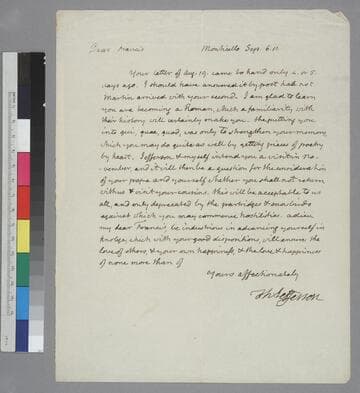 Dear Francis Monticello Sept. 6. 11
Your letter of Aug. 19. came to hand only 4. or 5.
days ago. I should have answered it by post had not
Martin arrived with your second. I am glad to learn
you are becoming a Roman, which a familiarity with
their history will certainly make you. the putting you
into qui, quae, quod, was only to strengthen your memory
which you may do quite as well by getting pieces of poetry
by heart. Jefferson & myself intend you a visit in No-
vember, and it will then be a question for the consideration
of your papa and yourself whether you shall not return
with us & visit your cousins. this will be acceptable to us
all, and only deprecated by the partridges & snowbirds
against which you may commence hostilities. adieu
my dear Francis, be industrious in advancing yourself in
knolege, which with your good dispositions, will ensure the
love of others, & your own happiness, & the love & happiness
of none more than of
Yours affectionately
Th Jefferson